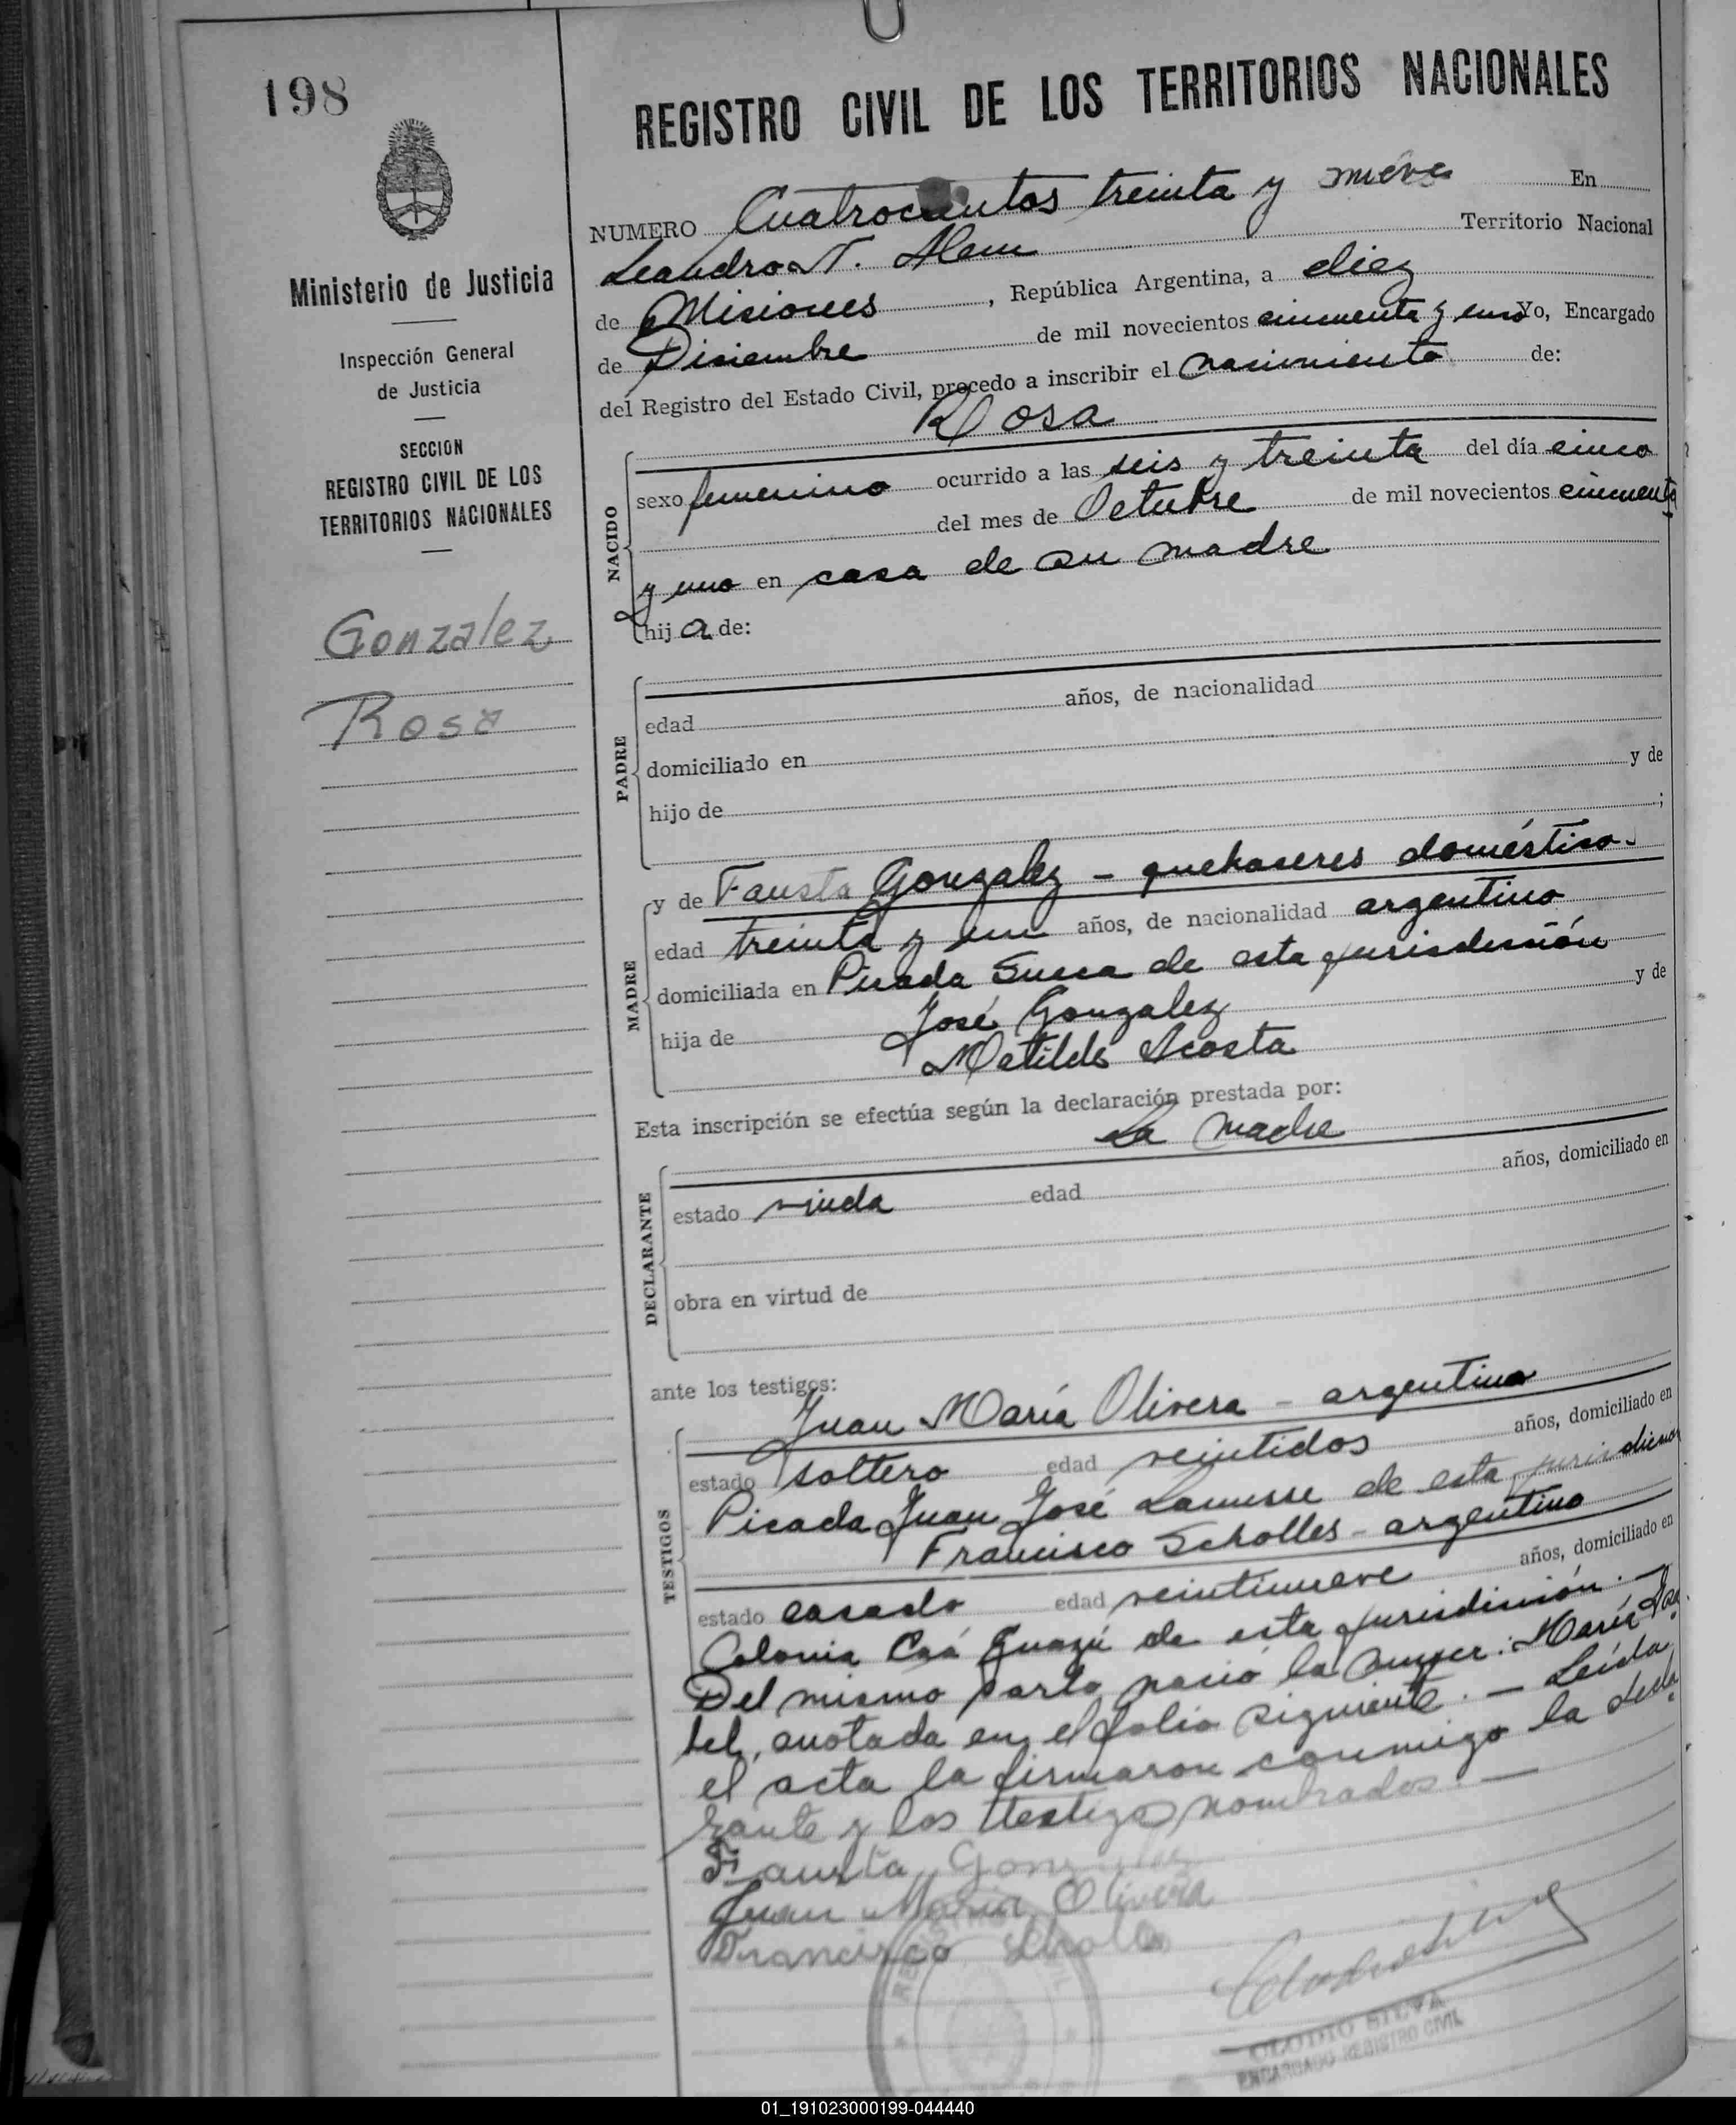 198
Ministerio de Justicia
Inspección General
de Justicia
SECCION
REGISTRO CIVIL DE LOS
TERRITORIOS NACIONALES
Gonzalez
Rosa
REGISTRO CIVIL DE LOS TERRITORIOS NACIONALES
NUMERO Cuatrocientos treinta y nueve En
Leandro N. Alem Territorio Nacional
de Misiones, República Argentina, a diez
de Diciembre de mil novecientos cincuenta y uno Yo, Encargado
del Registro del Estado Civil, procedo a inscribir el nacimiento de:
Rosa
NACIDO
sexo femenino ocurrido a las seis y treinta del día cinco
del mes de Octubre de mil novecientos cincuenta
y uno en casa de su madre
hija de:
PADRE
edad años, de nacionalidad
domiciliado en
hijo de y de
;
MADRE
y de Fausta Gonzalez - quehaseres doméstico.
edad treinta y un años, de nacionalidad argentino
domiciliada en Picada Sueca de esta jurisdicción
hija de José Gonzalez y de
Matilde Acosta
Esta inscripción se efectúa según la declaración prestada por:
La madre
DECLARANTE
estado viuda edad años, domiciliado en
obra en virtud de
ante los testigos:
TESTIGOS
Juan María Olivera - argentino
estado soltero edad veintidos años, domiciliado en
Picada Juan José Lanusse de esta jurisdicción
Francisco Scholles - argentino
estado casado edad veintinueve años, domiciliado en
Colonia Caá Guazú de esta jurisdicción. —
Del mismo parto nació la mujer: María Isa
bel, anotada en el folio siguiente. — Leída
el acta la firmaron conmigo la decla
rante y los testigos nombrados. —
Fausta Gonzalez
Juan Maria Olivera
Francisco
CLODIO SILVA
ENCARGADO REGISTRO CIVIL
01_191023000199-044440